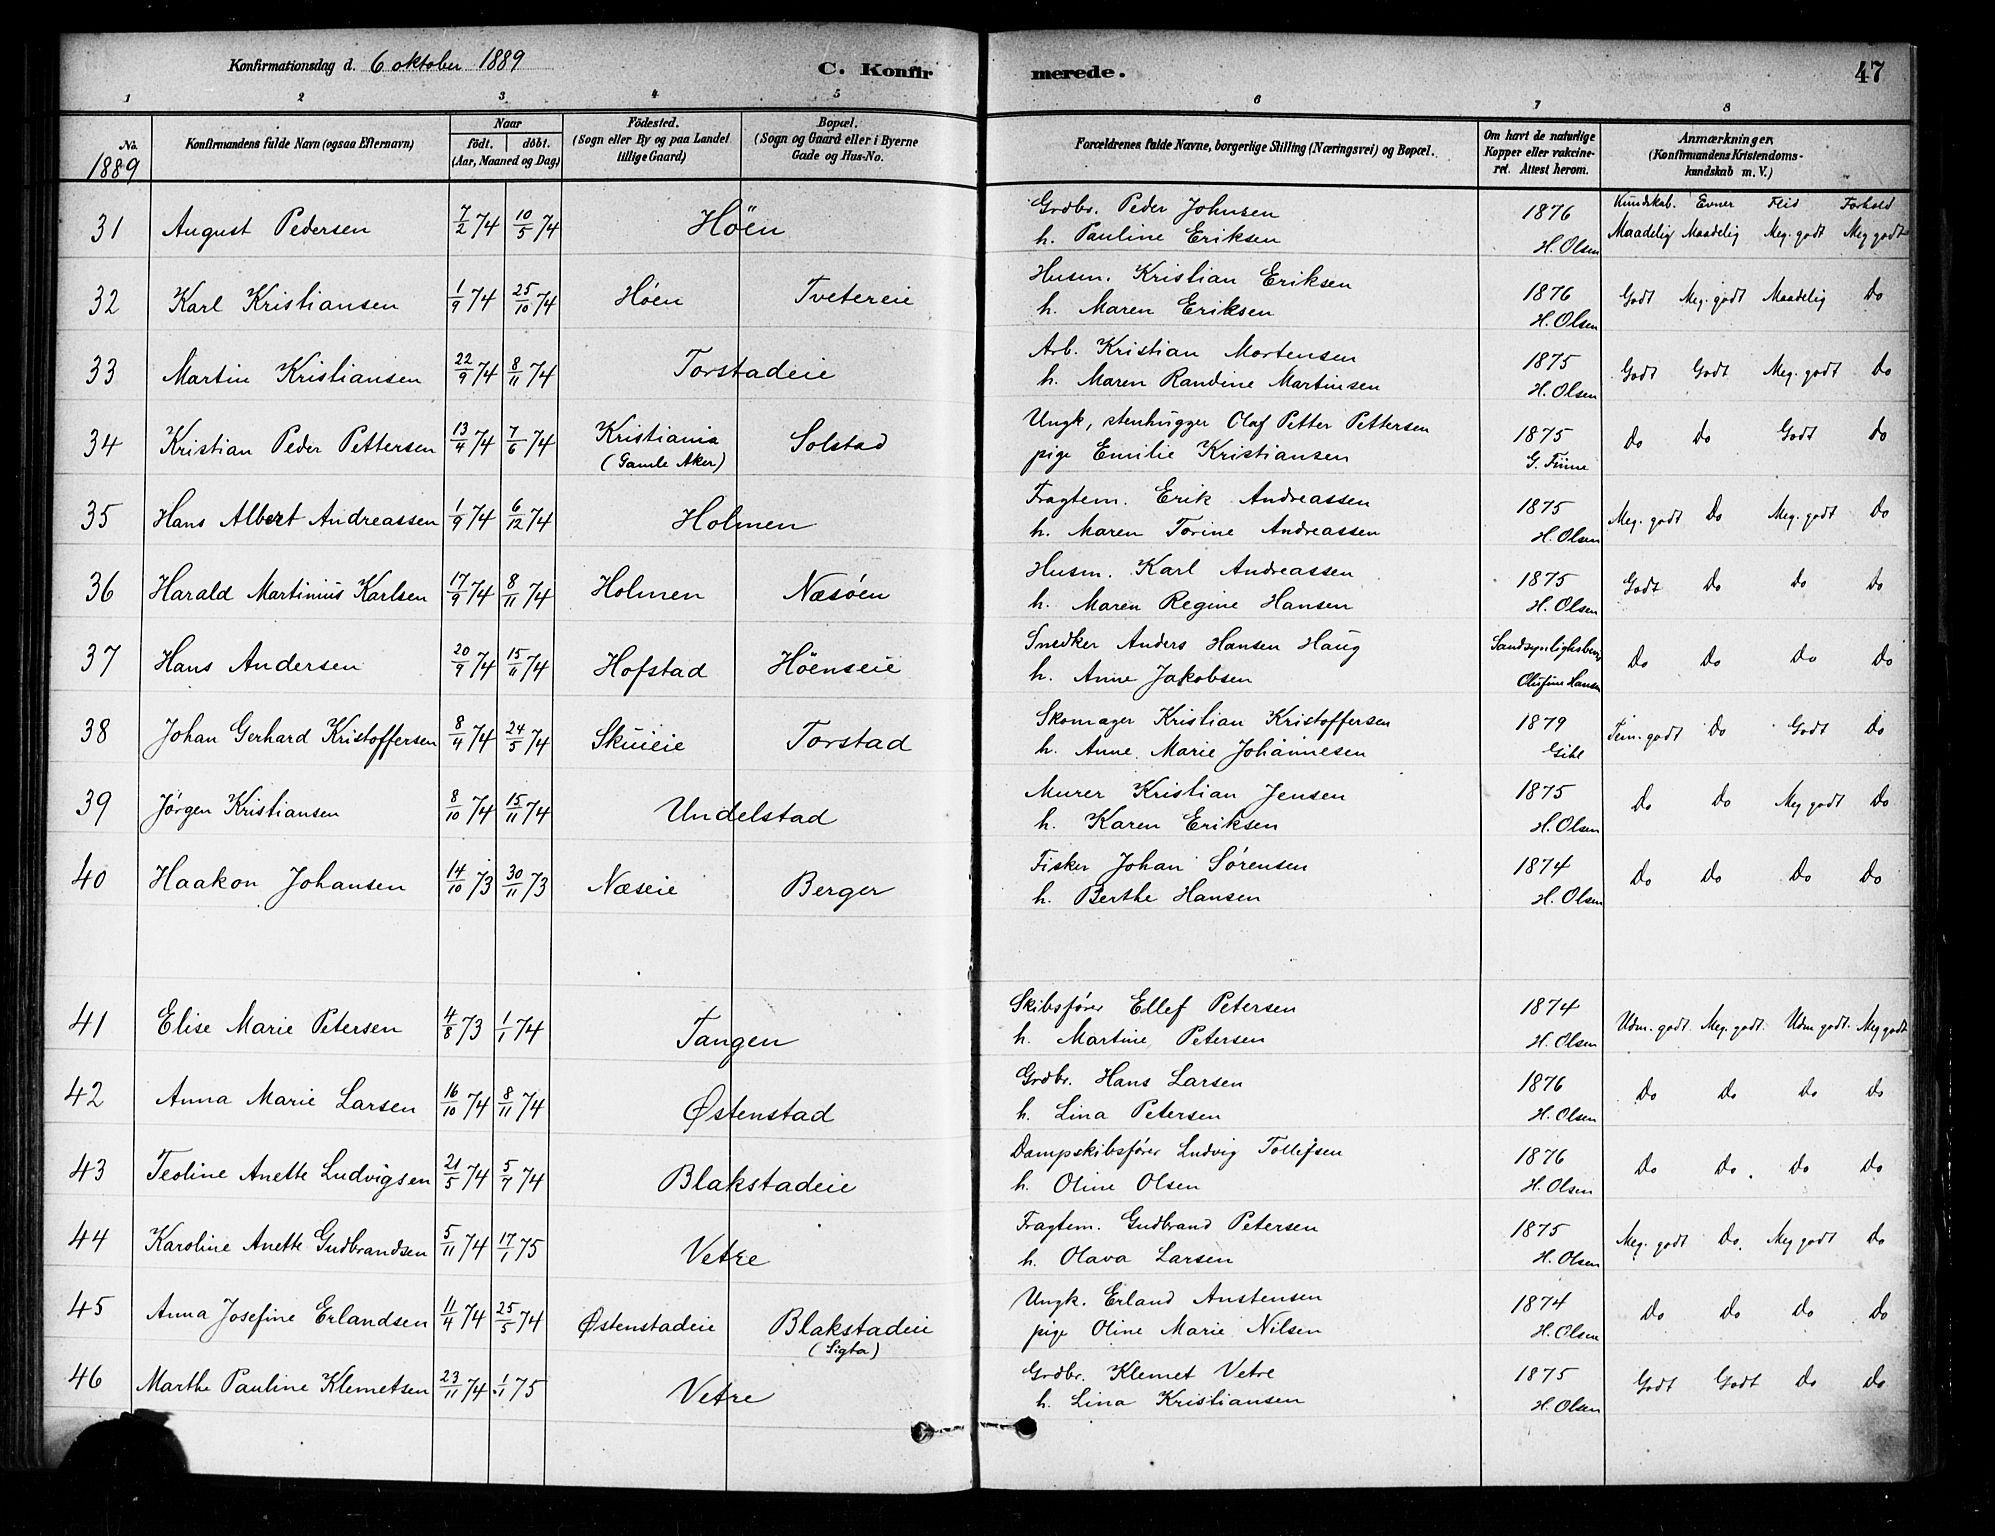 Konfirmationsdag d. 6 oktober 1889 C. Konfir merede. 47
1 2 3 4 5 6 7 8
No. 1889
Konfirmandens fulde Navn (ogsaa Efternavn)
Naar
födt. döbt.
(Aar, Maaned og Dag)
Födested.
(Sogn eller By og paa Landet
tillige Gaard)
Bopæl.
(Sogn og Gaard eller i Byerne
Gade og Hus-No.
Forældrenes fulde Navne, borgerlige Stilling (Næringsvei) og Bopæl.
Om havt de naturlige
Kopper eller vakcine-
ret. Attest herom.
Anmærkninger.
(Konfirmandens Kristendoms-
kundskab m. V.)
Kundskab. Evner Flid Forhold
31 August Pedersen 7/2 74 10/5 74 Höen
Grdbr. Peder Johnsen
h. Pauline Eriksen
1876
H. Olsen
Maadelig Maadelig Meg. godt Meg godt
32 Karl Kristiansen 1/9 74 25/10 74 Höen Tvetereie
Husm. Kristian Eriksen
h. Maren Eriksen
1876
H. Olsen
Godt Meg. godt Maadelig Do
33 Martin Kristiansen 22/9 74 8/11 74 Torstadeie
Arb. Kristian Mortensen
h. Maren Randine Martinsen
1875
H. Olsen
Godt Godt Meg. godt Do
34 Kristian Peder Pettersen 13/4 74 7/6 74 Kristiania
(Gamle Aker)
Solstad
Ungk, stenhugger Olaf Petter Pettersen
pige Emilie Kristiansen
1875
G.
Do Do Godt Do
35 Hans Albert Andreassen 1/9 74 6/12 74 Holmen
Fragtem. Erik Andreassen
h. Maren Torine Andreassen
1875
H. Olsen
Meg. godt Do Meg. godt Do
36 Harald Martinius Karlsen 17/9 74 8/11 74 Holmen Næsöen
Husm. Karl Andreassen
h. Maren Regine Hansen
1875
H. Olsen
Godt Do Do Do
37 Hans Andersen 20/9 74 15/11 74 Hofstad Höenseie
Snedker Anders Hansen Haug
h. Anne Jakobsen
Sandsynlighsbev
Olufine Hansen
Do Do Do Do
38 Johan Gerhard Kristoffersen 8/4 74 24/5 74 Skuieie Torstad
Skomager Kristian Kristoffersen
h. Anne Marie Johannesen
1879
Gihl
Tem. godt Do Godt Do
39 Jörgen Kristiansen 8/10 74 15/11 74 Undelstad
Murer Kristian Jensen
h. Karen Eriksen
1875
H. Olsen
Do Do Meg godt Do
40 Haakon Johansen 14/10 73 30/11 73 Næseie Berger
Fisker Johan Sørensen
h. Berthe Hansen
1874
H. Olsen
Do Do Do Do
41 Elise Marie Petersen 4/8 73 1/1 74 Tangen
Skibsfører Ellef Petersen
h. Martine Petersen
1874
H. Olsen
Udm. godt. Meg. godt. Udm godt. Meg godt
42 Anna Marie Larsen 16/10 74 8/11 74 Østenstad
Grdbr. Hans Larsen
h. Lina Petersen
1876
H. Olsen
Do Do Do Do
43 Teoline Anette Ludvigsen 21/5 74 5/7 74 Blakstadeie
Dampskibsfører Ludvig Tollefsen
h. Oline Olsen
1876
H. Olsen
Do Do. Do Do
44 Karoline Anette Gudbrandsen 5/11 74 17/1 75 Vetre
Fragtem. Gudbrand Petersen
h. Olava Larsen
1875
H. Olsen
Meg. godt Do. Meg godt Do
45 Anna Josefine Erlandsen 11/4 74 25/5 74 Østenstadeie Blakstadeie
(Sigta)
Ungk. Erland Anstensen
pige Oline Marie Nilsen
1874
H. Olsen
Do Do Do Do
46 Marthe Pauline Klemetsen 23/11 74 1/1 75 Vetre
Grdbr. Klemet Vetre
h. Lina Kristiansen
1875
H. Olsen
Godt Godt Do Do